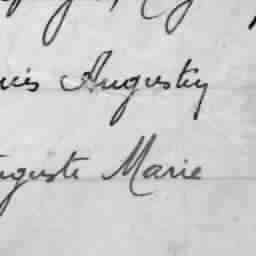 uis Augustin
uguste Marie